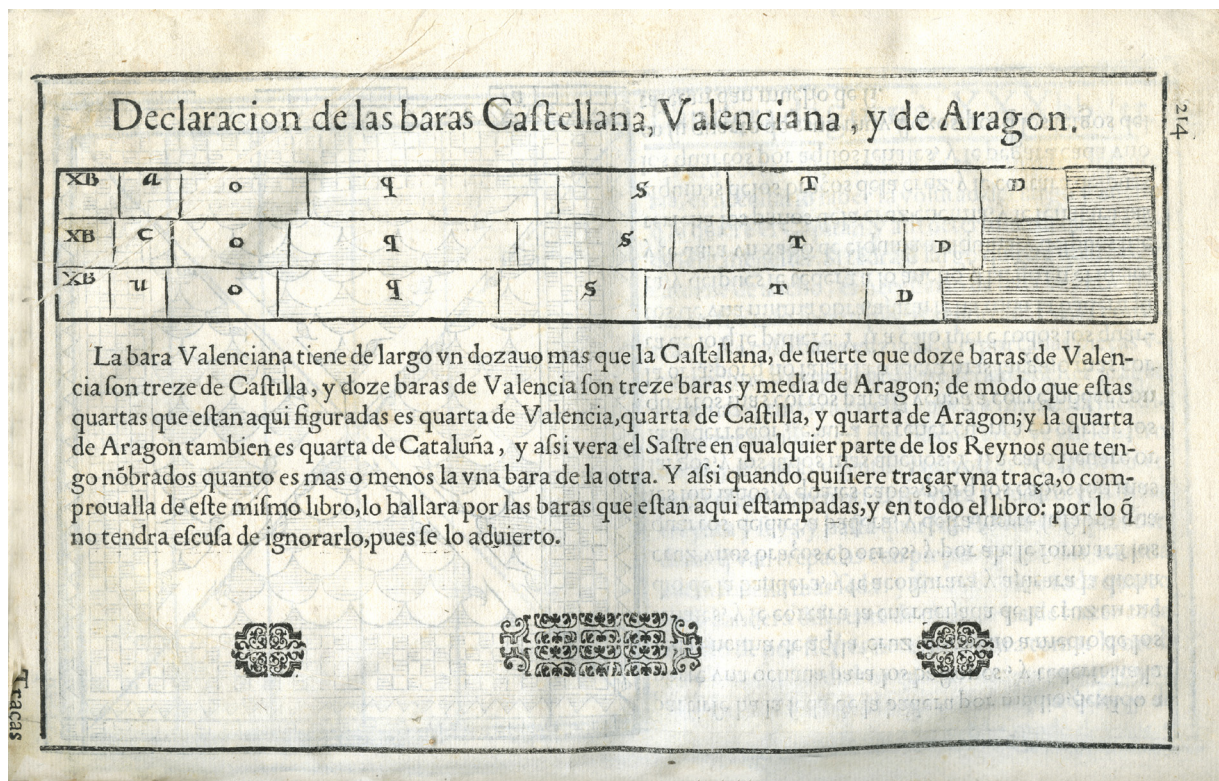 Declaracion de las baras Caſtellana, Valenciana, y de Aragon.
214
XB a o q S T D
XB c o q S T D
XB u o q S T D
La bara Valenciana tiene de largo vn dozauo mas que la Caſtellana, de ſuerte que doze baras de Valen-
cia ſon treze de Caſtilla, y doze baras de Valencia ſon treze baras y media de Aragon; de modo que eſtas
quartas que eſtan aqui figuradas es quarta de Valencia, quarta de Caſtilla, y quarta de Aragon; y la quarta
de Aragon tambien es quarta de Cataluña, y aſsi vera el Saſtre en qualquier parte de los Reynos que ten-
go nõbrados quanto es mas o menos la vna bara de la otra. Y aſsi quando quiſiere traçar vna traça, o com-
proualla de eſte miſmo libro, lo hallara por las baras que eſtan aqui eſtampadas, y en todo el libro: por lo q̃
no tendra eſcuſa de ignorarlo, pues ſe lo aduierto.
Traças